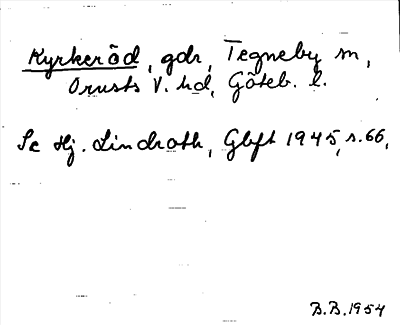 Kyrkeröd, gdr, Tegneby sn,
Orusts V. hd, Göteb. l.
Se Hj. Lindroth, Gbft 1945, s. 66.
B.B. 1954